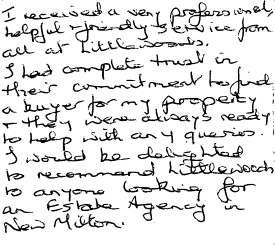 I received a very professional,
helpful + friendly service from
all at Littlewoods.
I had complete trust in
their commitment to find
a buyer for my property
+ they were always ready
to help with any queries.
I would be delighted
to recommend Littlewoods
to anyone looking for
an Estate Agency in
New Milton.